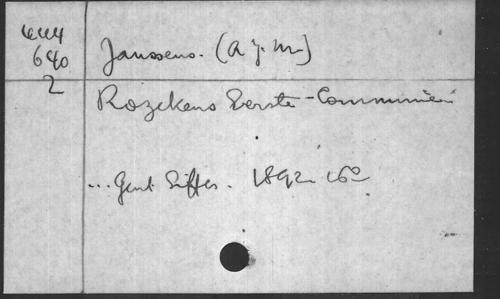 644
640
2
Janssens. (A. J. M.)
Rozekens Eerste-Communie
... Gent. Siffer. 1892. 16º